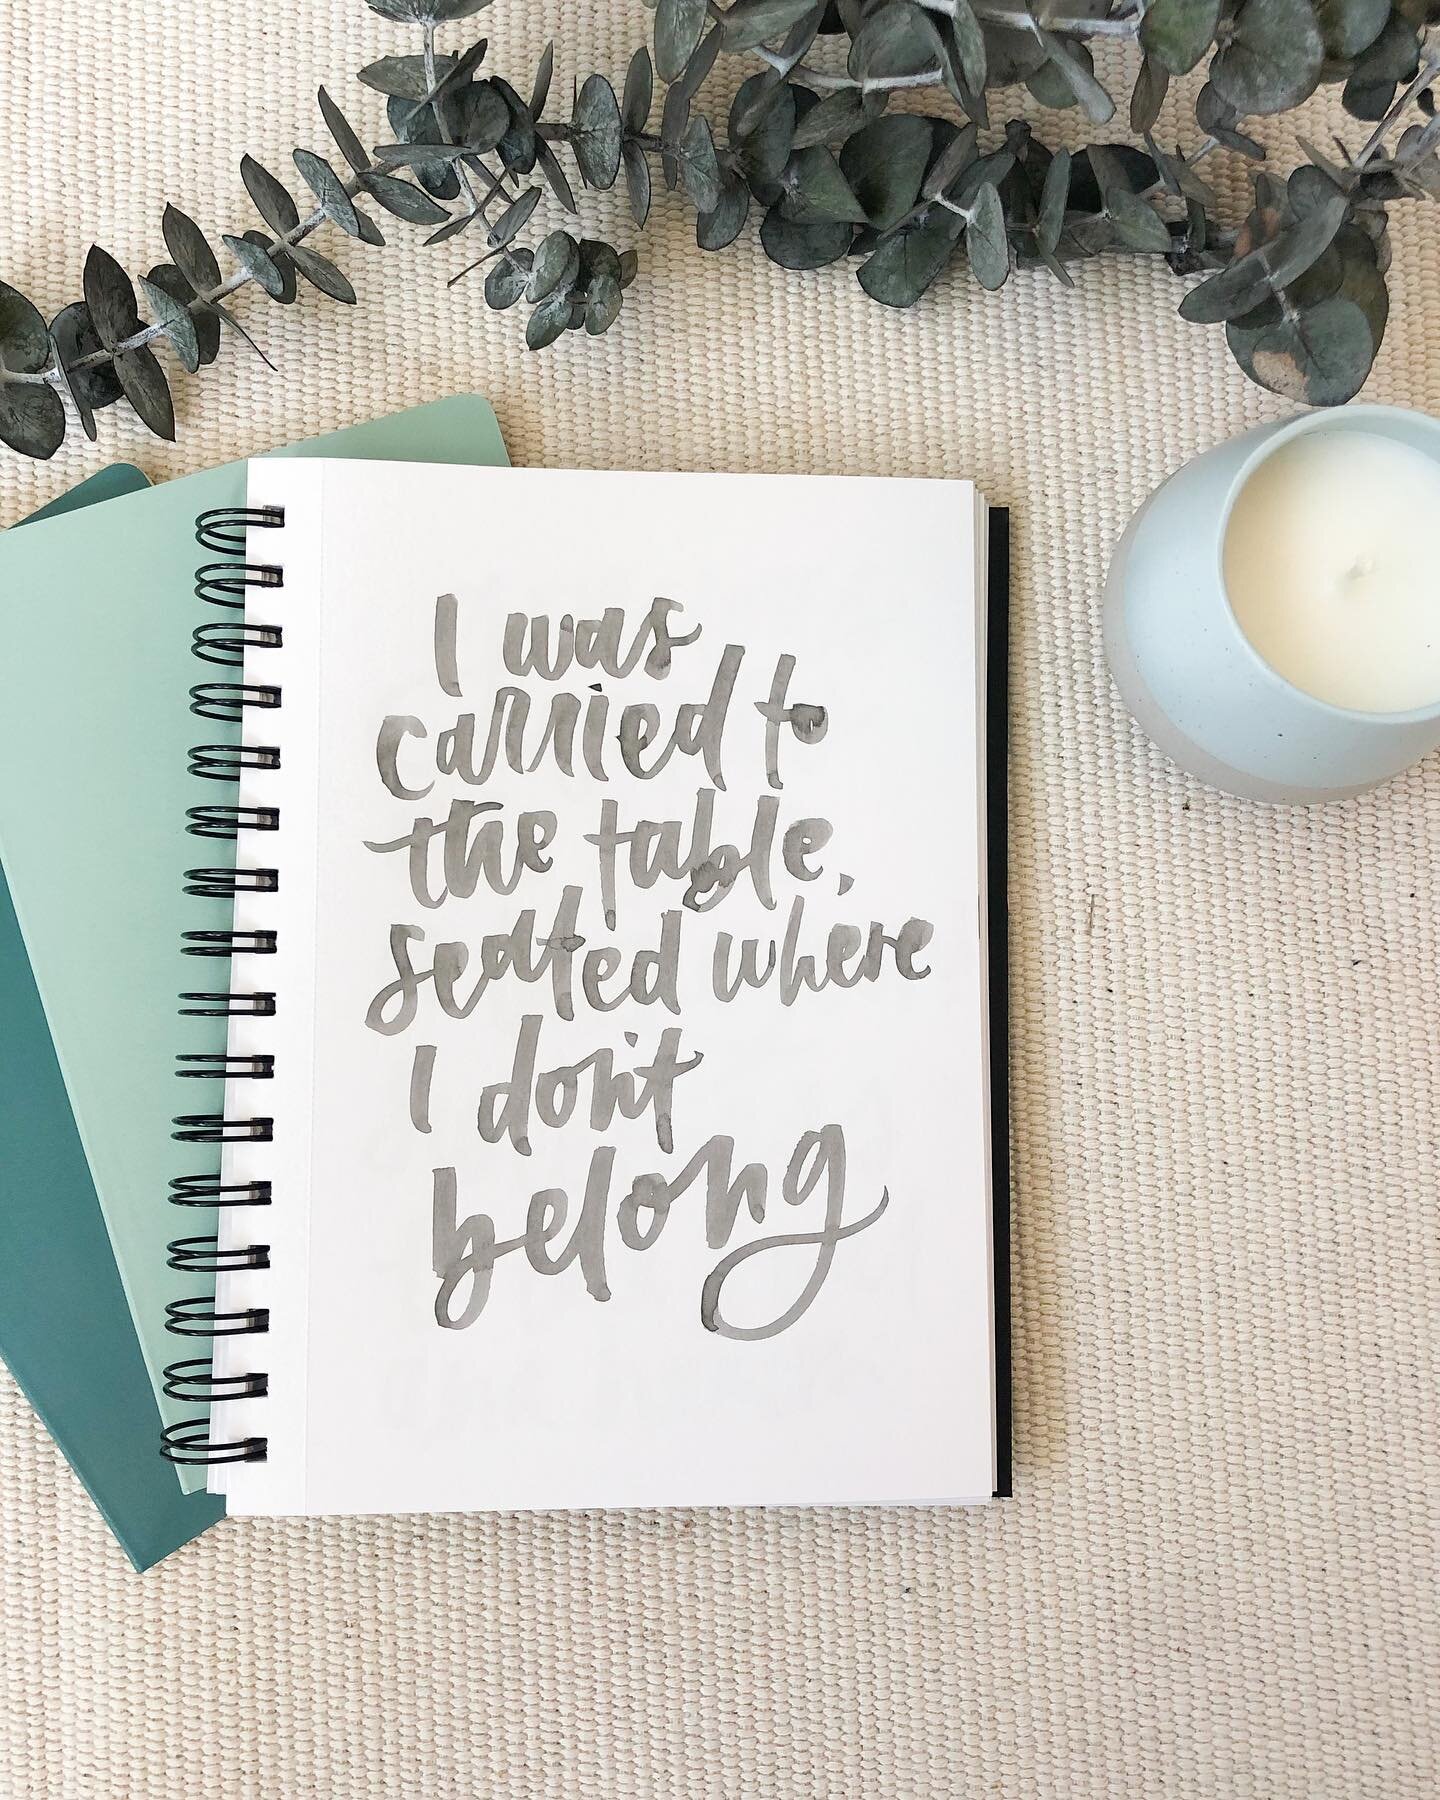 I was
carried to
the table,
seated where
I don't
belong